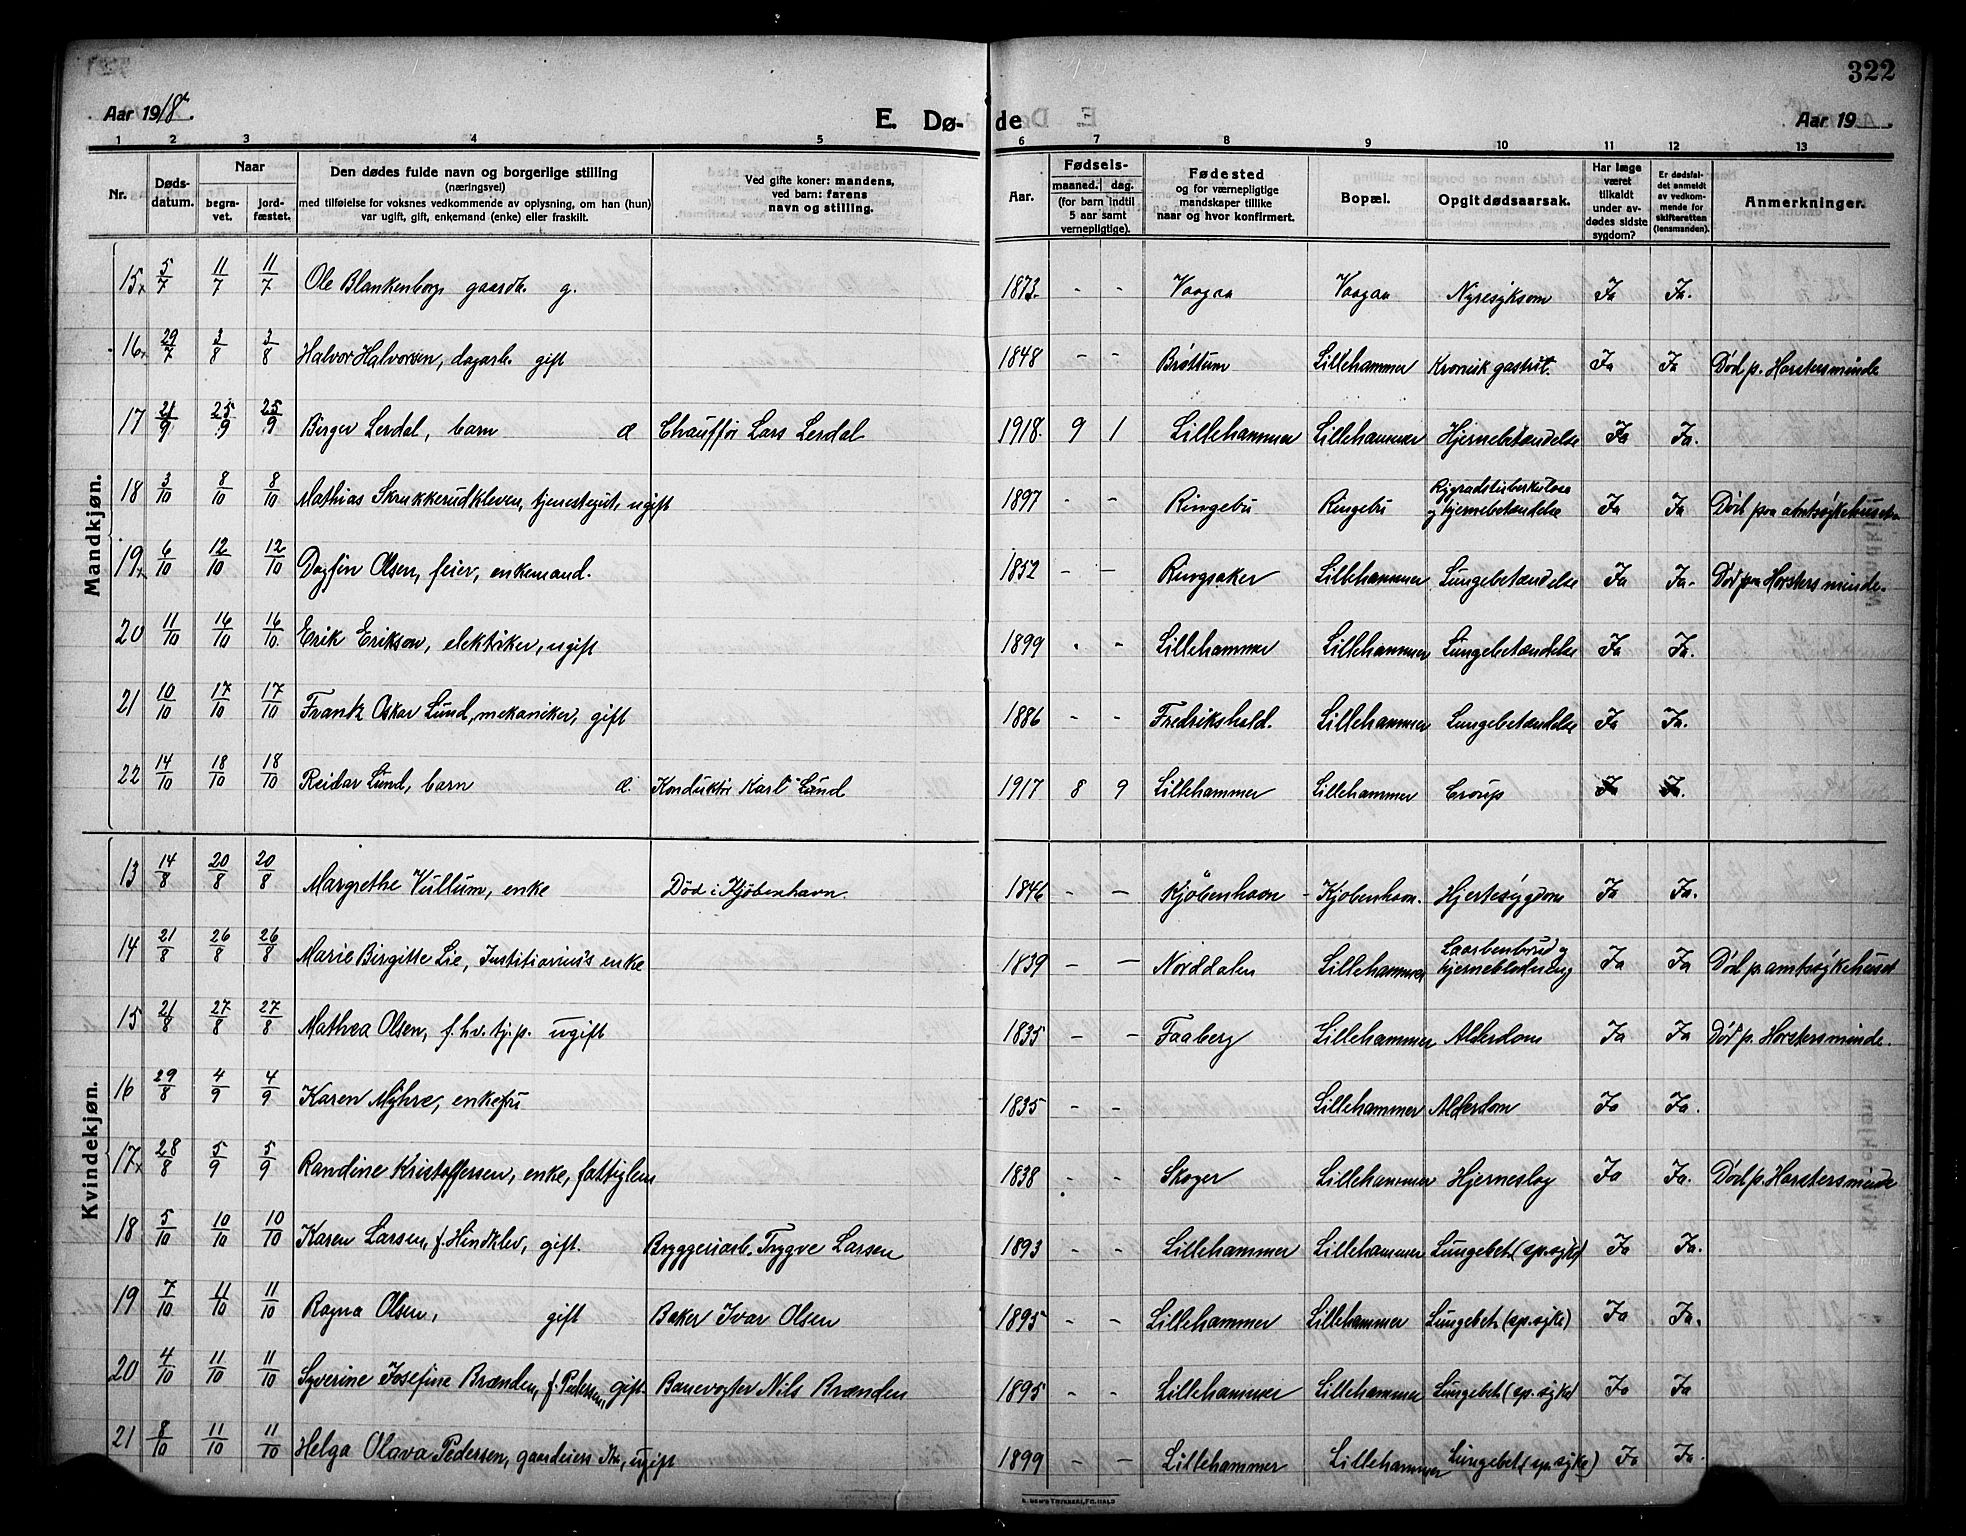 322
Aar 1918.
E. Dø- de
Aar 19
1 2 3 4 5 6 7 8 9 10 11 12 13
Nr.
Døds-
datum.
Naar
begra-
vet.
jord-
fæstet.
Den dødes fulde navn og borgerlige stilling
(næringsvei)
med tilføielse for voksnes vedkommende av oplysning, om han (hun)
var ugift, gift, enkemand (enke) eller fraskilt.
Ved gifte koner: mandens,
ved barn: farens
navn og stilling.
Aar.
Fødsels-
maaned. dag.
(for barn indtil
5 aar samt
vernepligtige).
Fødested
og for værnepligtige
mandskaper tillike
naar og hvor konfirmert.
Bopæl.
Opgit dødsaarsak.
Har læge
været
tilkaldt
under av-
dødes sidste
sygdom?
Er dødsfal-
det anmeldt
av vedkom-
mende for
skifteretten
(lensmanden).
Anmerkninger.
Mandkjøn.
15x 5/7 11/7 11/7 Ole Blankenborg gaardb. g. 1873. - - Vaagaa Vaagaa Nyresyksom Ja Ja.
16x 29/7 3/8 3/8 Halvor Halvorsen, dagarb. gift 1848 - - Brøttum Lillehammer Kronisk gastrit. Ja Ja Død p. Horstersminde
17 21/9 25/9 25/9 Birger Lerdal, barn d Chauffør Lars Lerdal 1918. 9 1 Lillehammer Lillehammer Hjernebetændelse Ja Ja.
18 3/10 8/10 8/10 Mathias Skrukkerudkleven, tjenestegut, ugift 1897 - - Ringebu Ringebu Rygradstuberkulose
og hjernebetændelse Ja Ja Død paa amtsykehuset
19x 6/10 12/10 12/10 Dagfin Olsen, feier, enkemand. 1852 - - Ringsaker Lillehammer Lungebetændelse Ja Ja- Død paa Horstersminde.
20 11/10 16/10 16/10 Erik Erikson, elektriker, ugift 1899 - - Lillehammer Lillehammer Lungebetændelse Ja Ja.
21 10/10 17/10 17/10 Frank Oskar Lund, mekaniker, gift 1886 - - Fredrikshald. Lillehammer Lungebetændelse Ja Ja.
22 14/10 18/10 18/10 Reidar Lund, barn d. Konduktør Karl Lund 1917 8 9 Lillehammer Lillehammer Croup Ja Ja.
Kvindekjøn.
13 14/8 20/8 20/8 Margrethe Vullum, enke Död i Kjøbenhavn. 1846 - - Kjøbenhavn - Kjøbenhavn. Hjertesygdom Ja Ja.
14 21/8 26/8 26/8 Marie Birgitte Lie, Justitiarius's enke 1839 - - Norddalen Lillehammer Laarbenbrud og
hjerneblødning Ja Ja Død p. amtsykehuset
15 21/8 27/8 27/8 Mathea Olsen, f. hv. tj.p. ugift 1835 - - Faaberg Lillehammer Alderdom Ja Ja Død p. Horstersminde.
16 29/8 4/9 4/9 Karen Myhre, enkefru 1835 - - Lillehammer Alderdom Ja Ja.
17x 28/8 5/9 5/9 Randine Kristoffersen, enke, fattiglem 1838 - - Skoger Lillehammer Hjerneslag Ja Ja. Død p. Horstersminde
18 5/10 10/10 10/10 Karen Larsen, f. Hindklev, gift. Bryggeriarb. Trygve Larsen 1893 - - Lillehammer Lillehammer Lungebet. (sp.syke) Ja Ja.
19 7/10 11/10 11/10 Ragna Olsen, gift Baker Ivar Olsen 1895 - - Lillehammer Lillehammer Lungebet. (sp.syke) Ja Ja.
20 4/10 11/10 11/10 Syverine Josefine Brænden, f. Pedersen, gift. Banevogter Nils Brænden 1895 - - Lillehammer Lillehammer Lungebet. (sp.syke) Ja Ja
21 8/10 11/10 11/10 Helga Olava Pedersen, gaardeiers dtr., ugift 1899 - - Lillehammer Lillehammer Lungebet. (sp.syke) Ja Ja.